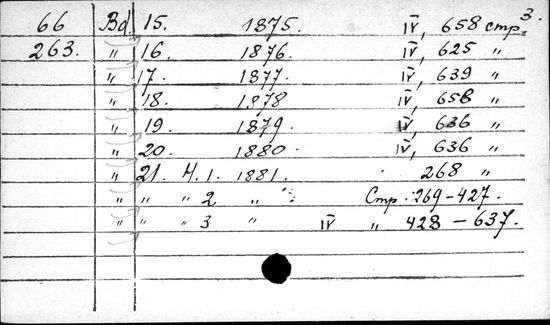 3.
66 Bd. 15. 1875. IV, 658 стр.
263. " 16. 1876. IV, 625 "
" 17. 1877. IV, 639 "
" 18. 1878 IV, 658 "
" 19. 1879. IV, 636 "
" 20. 1880. IV, 636 "
" 21. H. 1. 1881. 268 "
" " " 2 " Стр. 269-427.
" " " 3 " IV " 428-637.